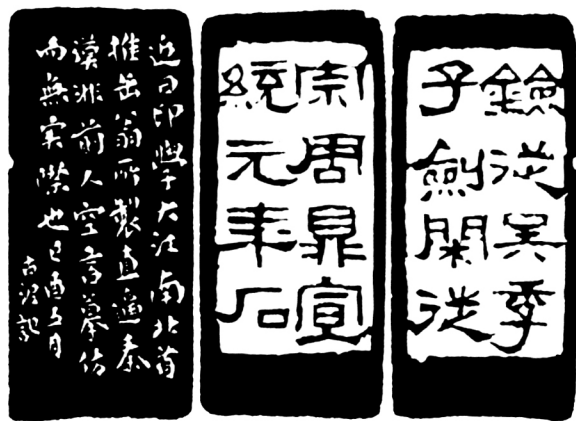 鐱從吳季
子劍閑從
宗周鼎宣
統元年石
近日印學大江南北首
推缶翁所製直逼秦
漢非前人空言摹仿
而無實際也己酉五月
古泥記